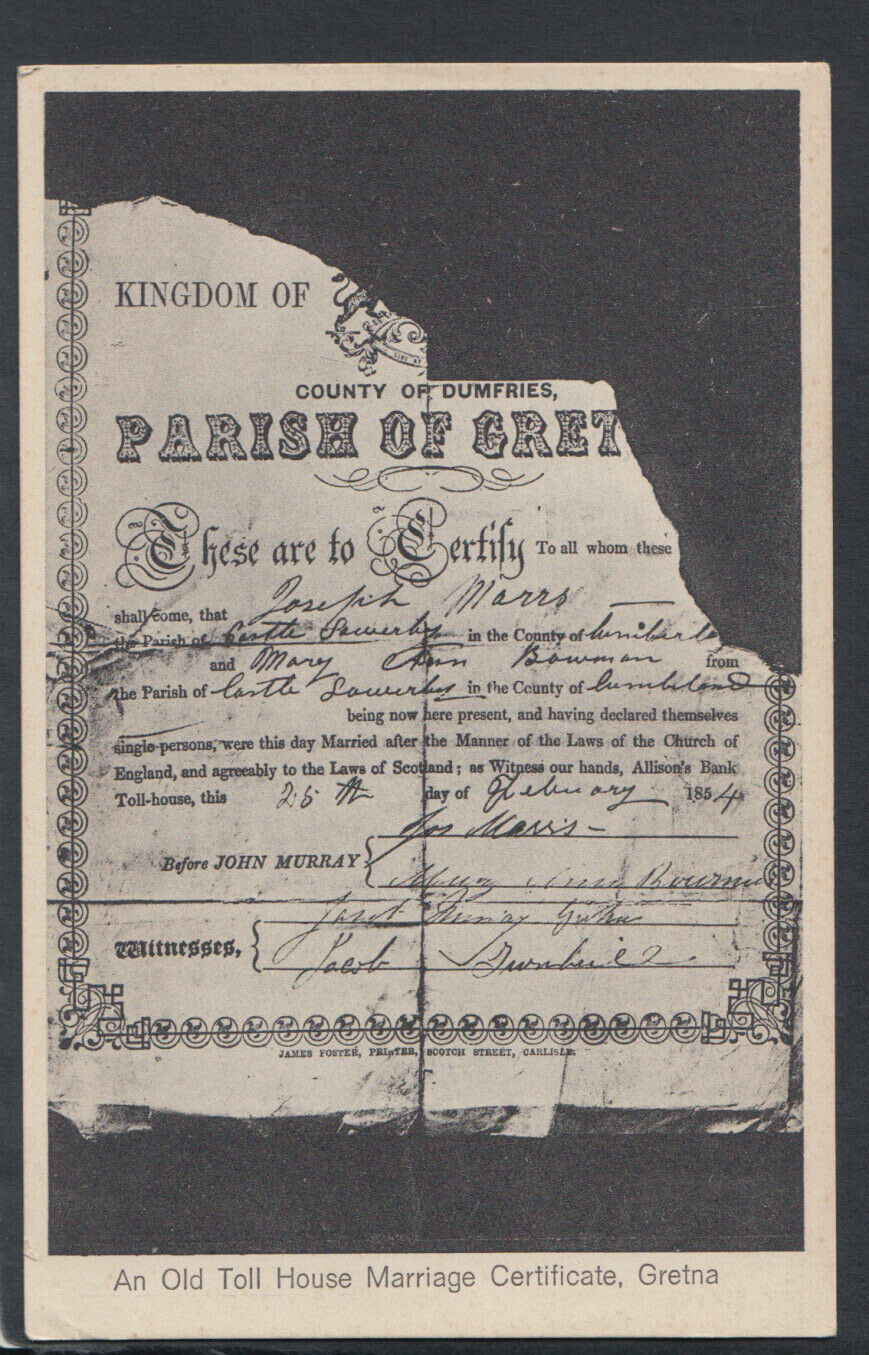 KINGDOM OF
COUNTY OF DUMFRIES,
PARISH OF GRET
These are to Certify To all whom these
shall come, that Joseph Marrs
the Parish of Castle Sowerby in the County of Cumberla
and Mary Ann Bowman from
the Parish of Castle Sowerby in the County of Cumberland
being now here present, and having declared themselves
single persons, were this day Married after the Manner of the Laws of the Church of
England, and agreeably to the Laws of Scotland; as Witness our hands, Allison's Bank
Toll-house, this 25th day of February 1854
Jos Marrs
Before JOHN MURRAY
Mary Ann Bowman
Murray
Witnesses,
Jacob Turnbull
JAMES FOSTER, PRINTER, SCOTCH STREET, CARLISLE.
An Old Toll House Marriage Certificate, Gretna